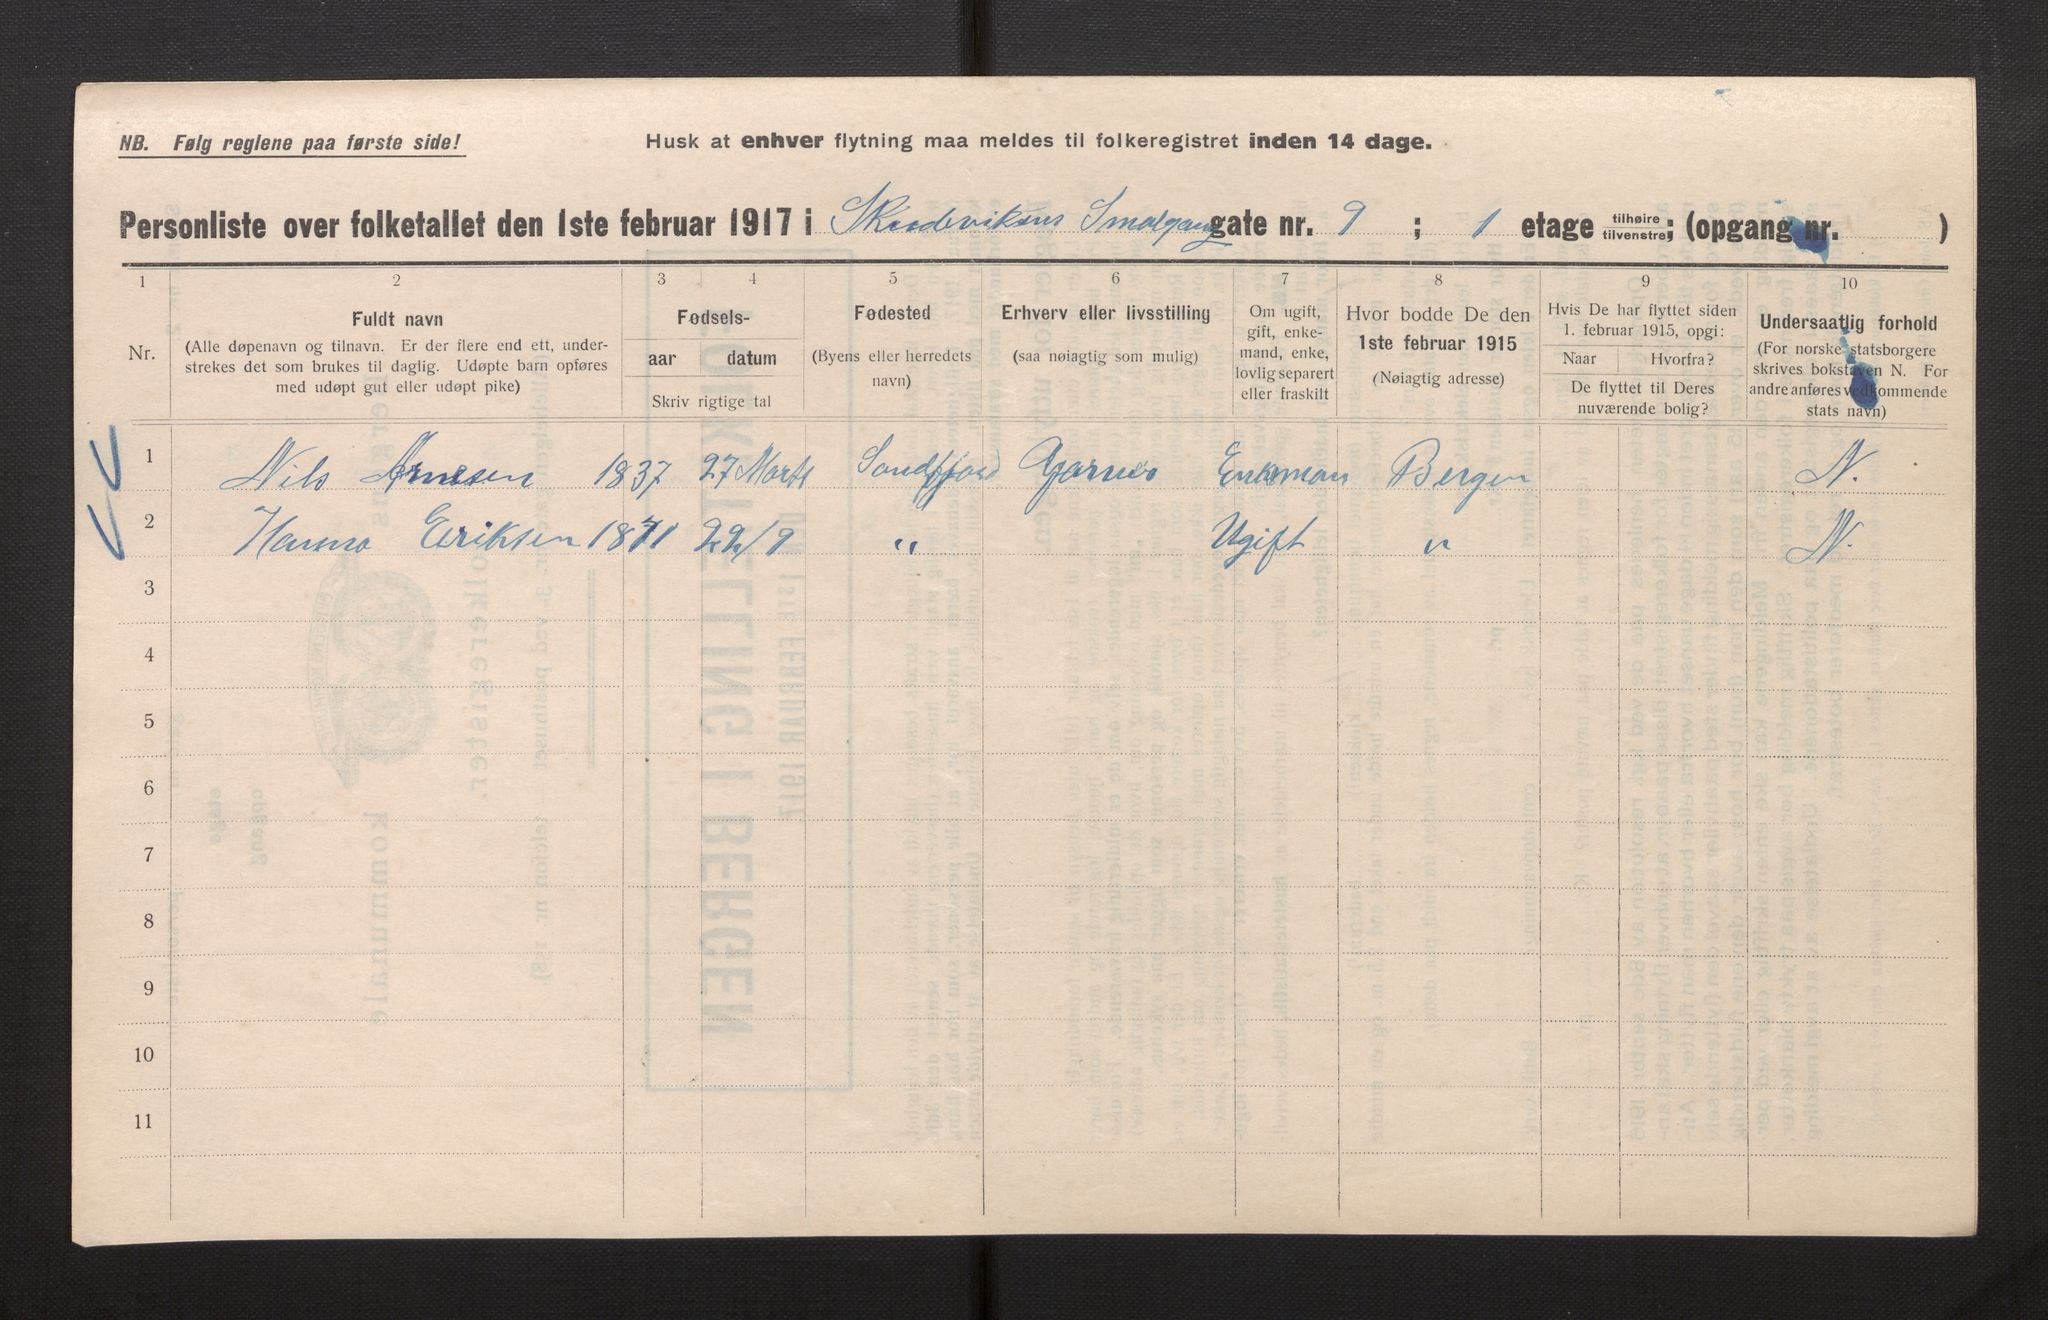 NB. Følg reglene paa første side!
Husk at enhver flytning maa meldes til folkeregistret inden 14 dage.
Personliste over folketallet den 1ste februar 1917 i Skudevikens Smalgang gate nr. 9 ; 1 etage tilhøire tilvenstre; (opgang nr. )
1 2 3 4 5 6 7 8 9 10
Nr.
Fuldt navn
(Alle døpenavn og tilnavn. Er der flere end ett, under-
strekes det som brukes til daglig. Udøpte barn opføres
med udøpt gut eller udøpt pike)
Fødsels-
aar datum
Skriv rigtige tal
Fødested
(Byens eller herredets
navn)
Erhverv eller livsstilling
(saa nøiagtig som mulig)
Om ugift,
gift, enke-
mand, enke,
lovlig separert
eller fraskilt
Hvor bodde De den
1ste februar 1915
(Nøiagtig adresse)
Hvis De har flyttet siden
1. februar 1915, opgi:
Naar Hvorfra?
De flyttet til Deres
nuværende bolig?
Undersaatlig forhold
(For norske statsborgere
skrives bokstaven N. For
andre anføres vedkommende
stats navn)
1 Nils Arnesen 1837 27 Marts Sondfjord Enkman Bergen N.
2 Hanna Eriksen 1871 22/9 " Ugift " N.
3
4
5
6
7
8
9
10
11